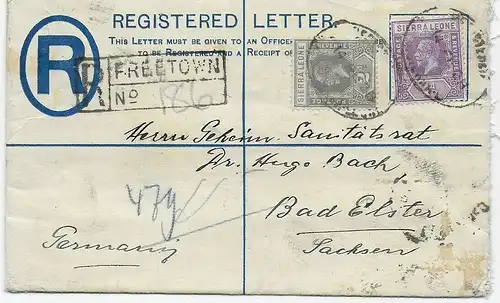 REGISTERED LETTER.
THIS LETTER MUST BE GIVEN TO AN OFFICER
TO BE REGISTERED AND A RECEIPT OF
R
R FREETOWN
No 186
SIERRA LEONE
SIERRA LEONE
Herrn Geheim. Sanitätsrat
Dr. Hugo Bach
479
Bad Elster
Germany
Sachsen